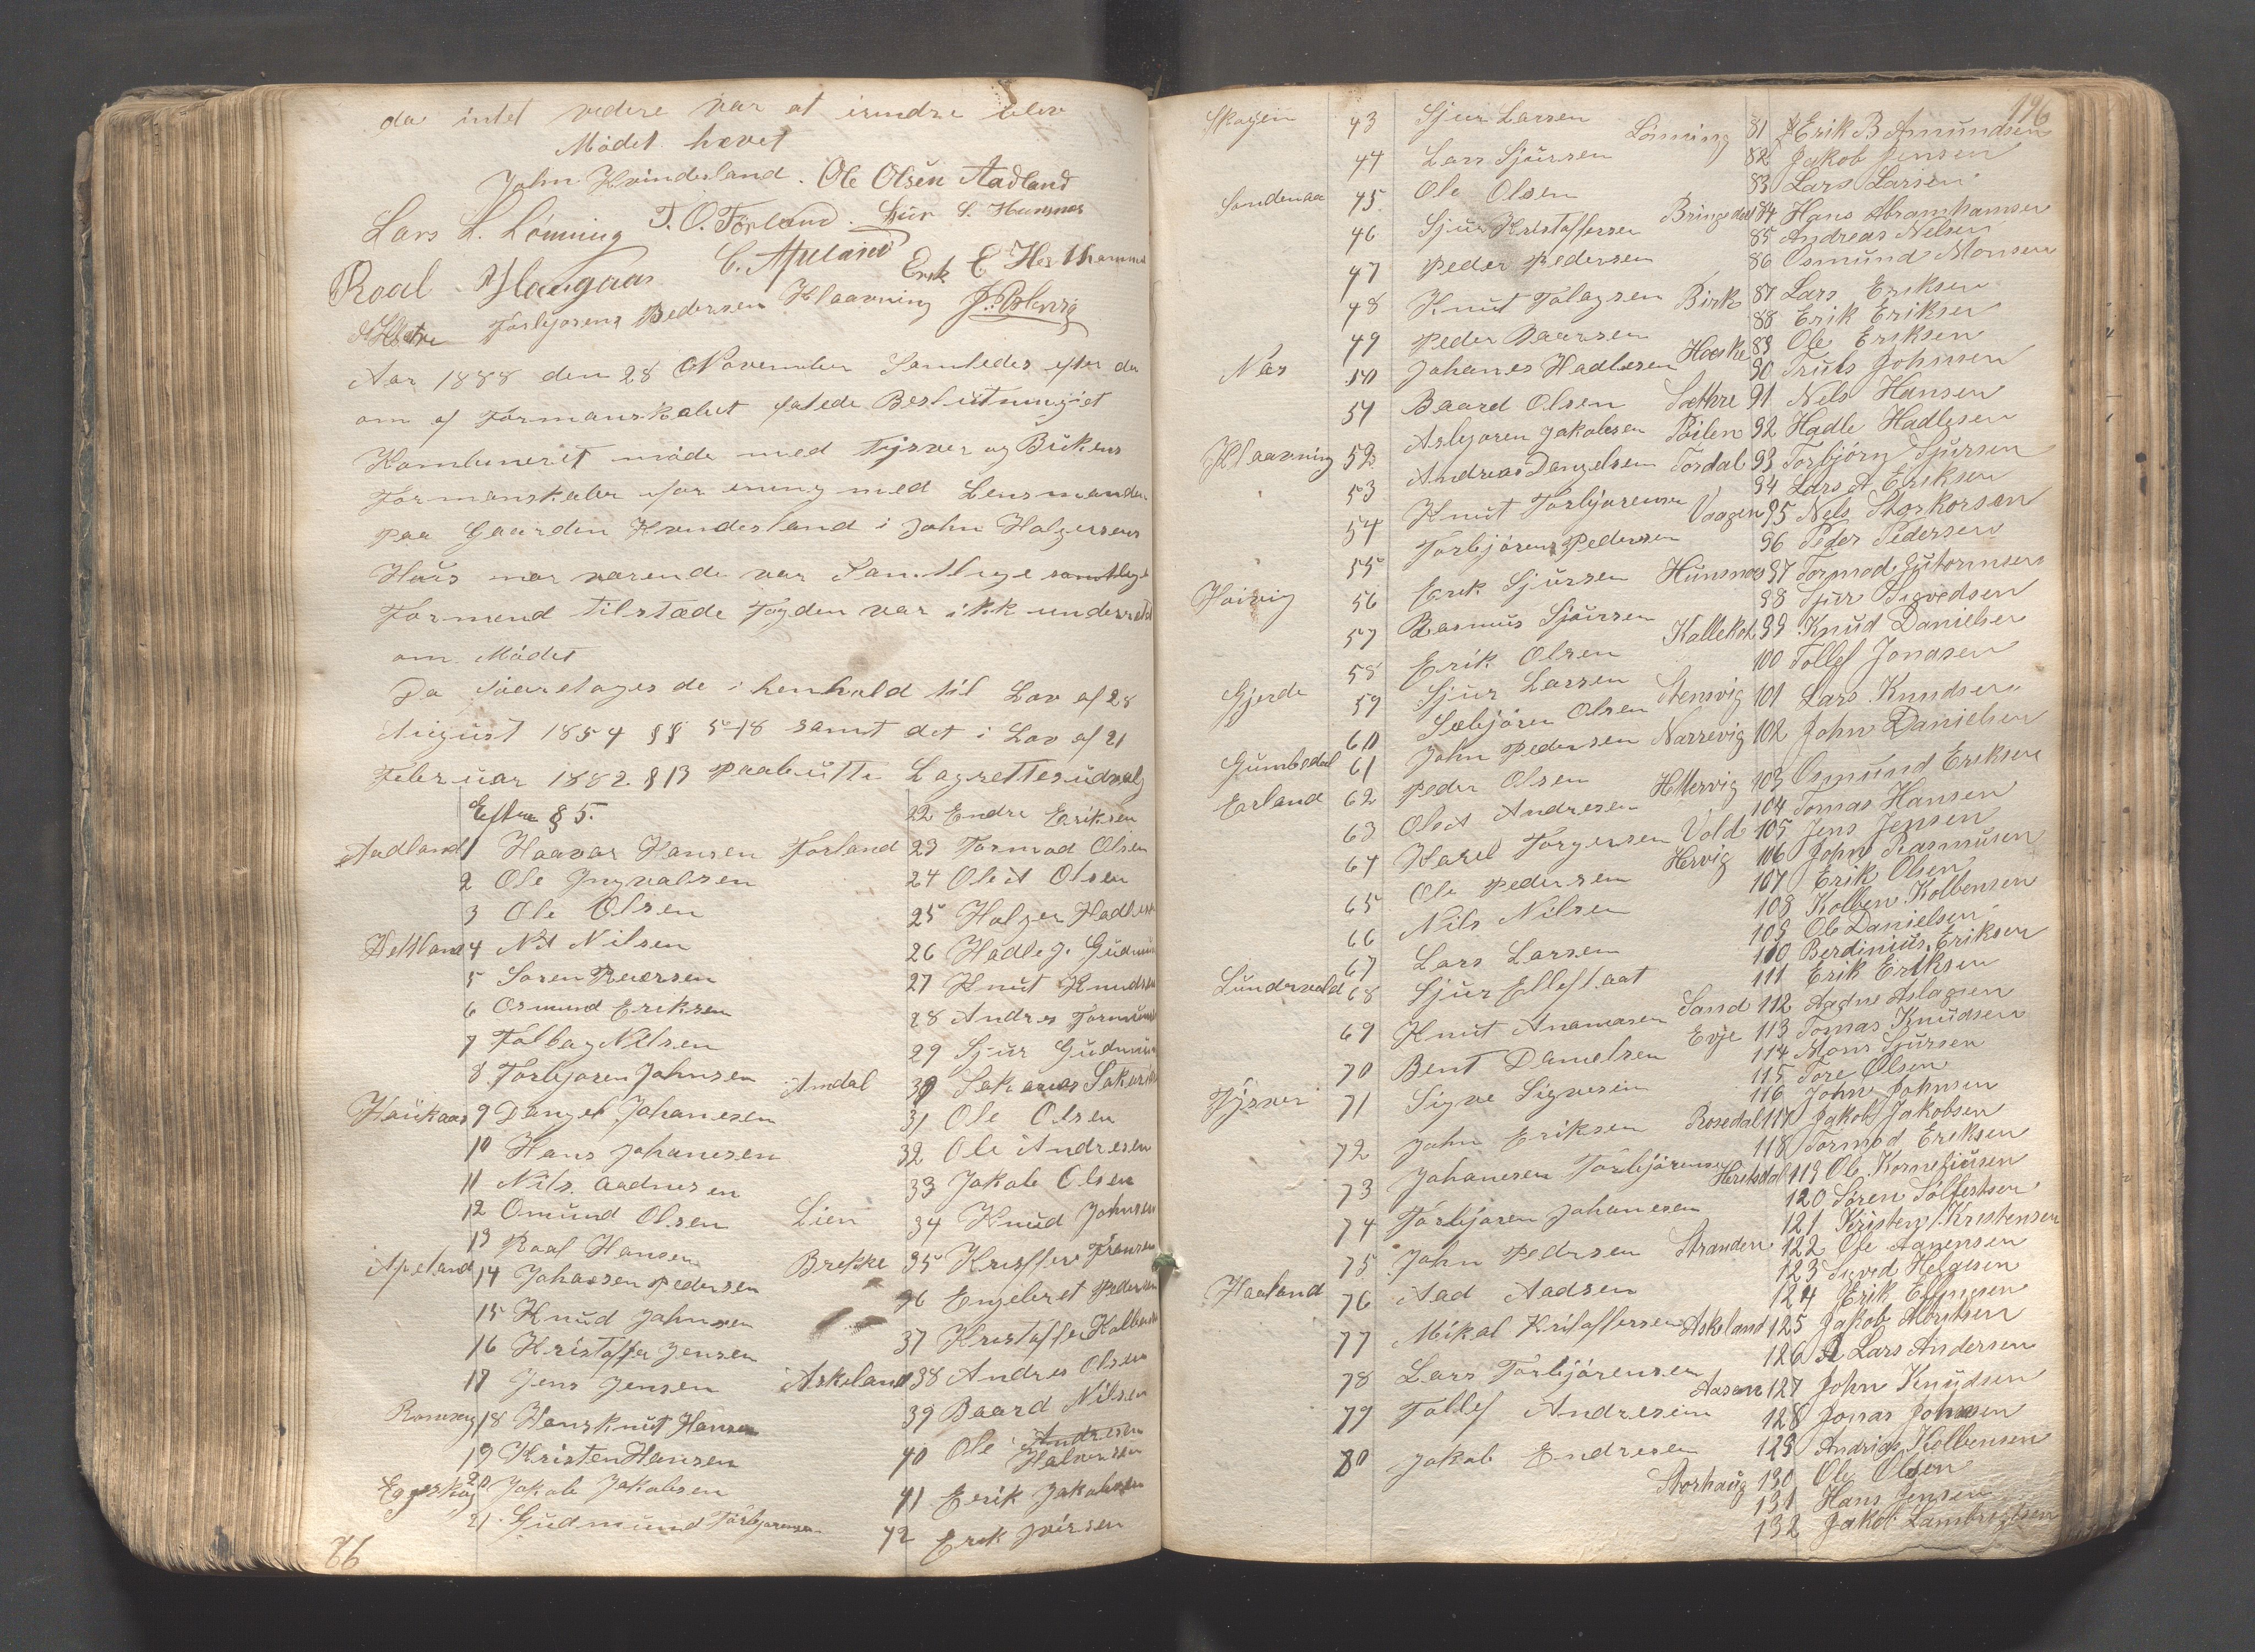 da intet videre var at erindre blev
Mødet hævet
John Hvinderland. Ole Olsen Aadland
Lars L. Lönning T. O. Förland. Sjur S. Hunsnes
Roal Haugaas C. Apeland Erik E
Torbjørens Pedersen Klaavning
Aar 1888 den 28 November Samledes efter da
om af Formanskabet fatede Beslutning et
Kombineret møde med Tysver og Bukens
Formanskaber for ening med Lensmanden
paa Gaarden Hvinderland i John Holgersens
Huus nær værende var Samtlige samtlige
Formend tilstæde Fogden var ikk underrett
om Mödet
Da foaretoges de i henhold til Lov af 28
August 1854 §§ 5-18 samt det i Lov af 21
Februar 1882 § 13 paabutte Lagrettesudvalg
Efter § 5.
Aadland 1 Haavar Hansen
2 Ole Ingvalsen
3 Ole Olsen
4 Nils Nilsen
5 Soren
6 Osmund Eriksen
7 Nilsen
8 Torbjoren Johnsen
Haukaas 9 Danyel Johanesen
10 Hans Johanesen
11 Nils Aadnesen
12 Omund Olsen
13 Roal Hansen
Apeland 14 Johanesen Pedersen
15 Knud Johnsen
16 Kristoffer Jensen
17 Jens Jensen
18 Hans Knut Hansen
19 Kristen Hansen
Eggeskog 20 Jakob Jakobsen
21 Gudmund Torbjorensen
22 Endre Eriksen
Forland 23 Tormod Olsen
24 Ole A Olsen
25 Holger Hadles
26 Hadle J. Gudmun
27 Knut Knudsen
28 Andres Tormun
29 Sjur Gudmun
Amdal 30 Sakarias Sakaris
31 Ole Olsen
32 Ole Andresen
33 Jakob Olsen
Lien 34 Knud Johnsen
Brekke 35 Fransen
36 Engebret Pedersen
37 Kristoffer Kolbens
Askeland 38 Andres Olsen
39 Baard Nilsen
40 Ole Andresen
Halvorsen
41 Eerik Jakobsen
42 Erik
86
196
Skogen 43 Sjur Larsen
44 Lars Sjursen
Sandenaa 45 Ole Olsen
46 Sjur Kristoffersen
47 Peder Pedersen
48 Knut Tolagsen
49 Peder Baarsen
Nas 50 Johanes Hadlesen
51 Baard Olsen
Asbjoren Jakobsen
Klaavning 52 Andreas Dangelsen
53 Knut Torbjorensen
54 Torbjörens Pedersen
55 Erik Sjursen
Hoivig 56 Rasmus Sjursen
57 Erik Olsen
58 Sjur Larsen
Gjerde 59 Sæbjören Olsen
60 John Pedersen
Gumbedal 61 Peder Olsen
Eorland 62 Ole A Andresen
63 Karel Torgersen
64 Ole Pedersen
65 Nils Nilsen
66 Lars Larsen
67 Sjur
Lundevold 68 Knut
69 Bent Danielsen
70 Sigve Sigvesen
Tysver 71 John Eriksen
72 Johanesen Torbjörensen
73 Torbjoren Johanesen
74 John Pedersen
75 Aad Aadsen
Haaland 76 Mikal Kristoffersen
77 Lars Torbjörensen
78 Tollef Andresen
79 Jakob Endresen
80
Lönning 81 Erik B Amundsen
82 Jakob Jensen
83 Lars Larsen
Bringedal 84 Hans Abramhamsen
85 Andreas Nelsen
86 Osmund Monsen
Birk 87 Lars Eriksen
88 Erik Eriksen
Hoeske 89 Ole Eriksen
90 Truls Johnsen
Soethre 91 Nels Hansen
Pöilen 92 Hadle Hadlesen
Tordal 93 Torbjörn Sjursen
94 Lars A Eriksen
Vaagen 95 Nels Storkorsen
96 Peder Pedersen
Hunsnes 97 Tormod Gutormsen
98 Sjur Sigvedsen
Kallekod 99 Knud Danielsen
100 Tollef Jonasen
Stensvig 101 Lars Knudsen
Narrevig 102 John Danielsen
Hettervig 103 Osmund Eriksen
104 Tomas Hansen
Vold 105 Jens Jensen
Hervig 106 John Rasmusen
107 Erik Olsen
108 Kolben Kolbensen
109 Ole Danielsen
110 Berdinius Eriksen
111 Erik Eriksen
Sand 112 Aadne Aslagsen
Evje 113 Tomas Knudsen
114 Mons Sjursen
115 Tore Olsen
116 John Johnsen
Rosedal 117 Jakob Jakobsen
118 Tormod Ereksen
119 Ole Korneliusen
120 Sören Sölfestsen
121 Kristen Kristensen
Stranden 122 Ole Aanensen
123 Sigved Helgesen
124 Erik Ellingsen
Askeland 125 Jakob Moritsen
126 Lars Andersen
Aasen 127 John Knudsen
128 Jonas Johnsen
129 Andrias Kolbensen
Storhaug 130 Ole Olsen
131 Hans Jensen
132 Jakob Lambregtsen